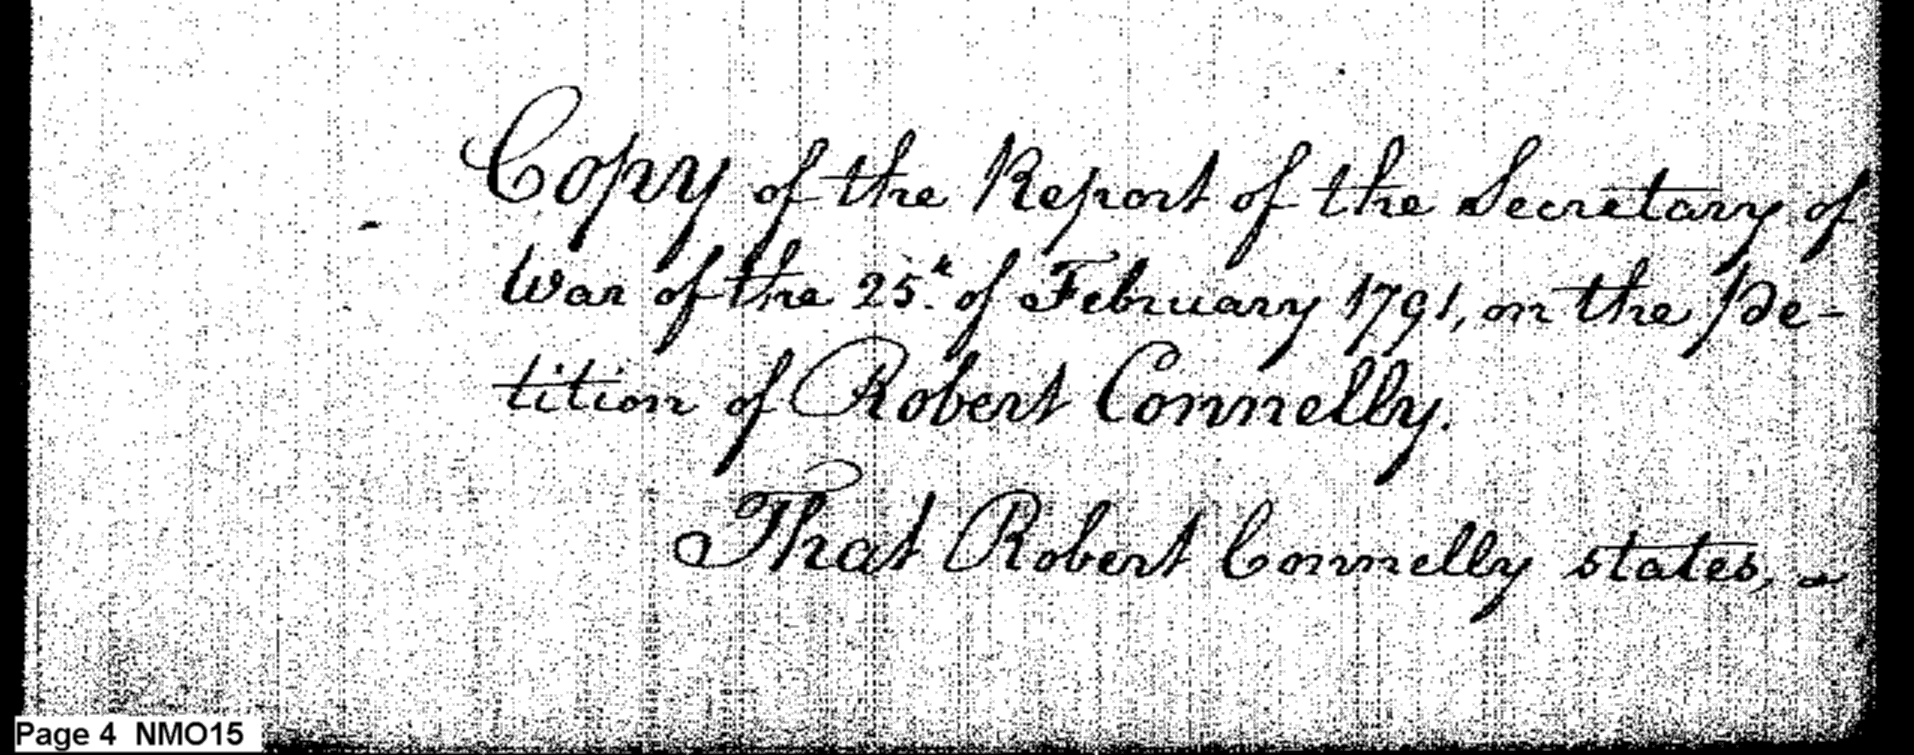 Copy of the Report of the Secretary of
War of the 25.h of February 1791, on the Pe-
tition of Robert Connelly.
That Robert Connelly states,
Page 4 NMO15